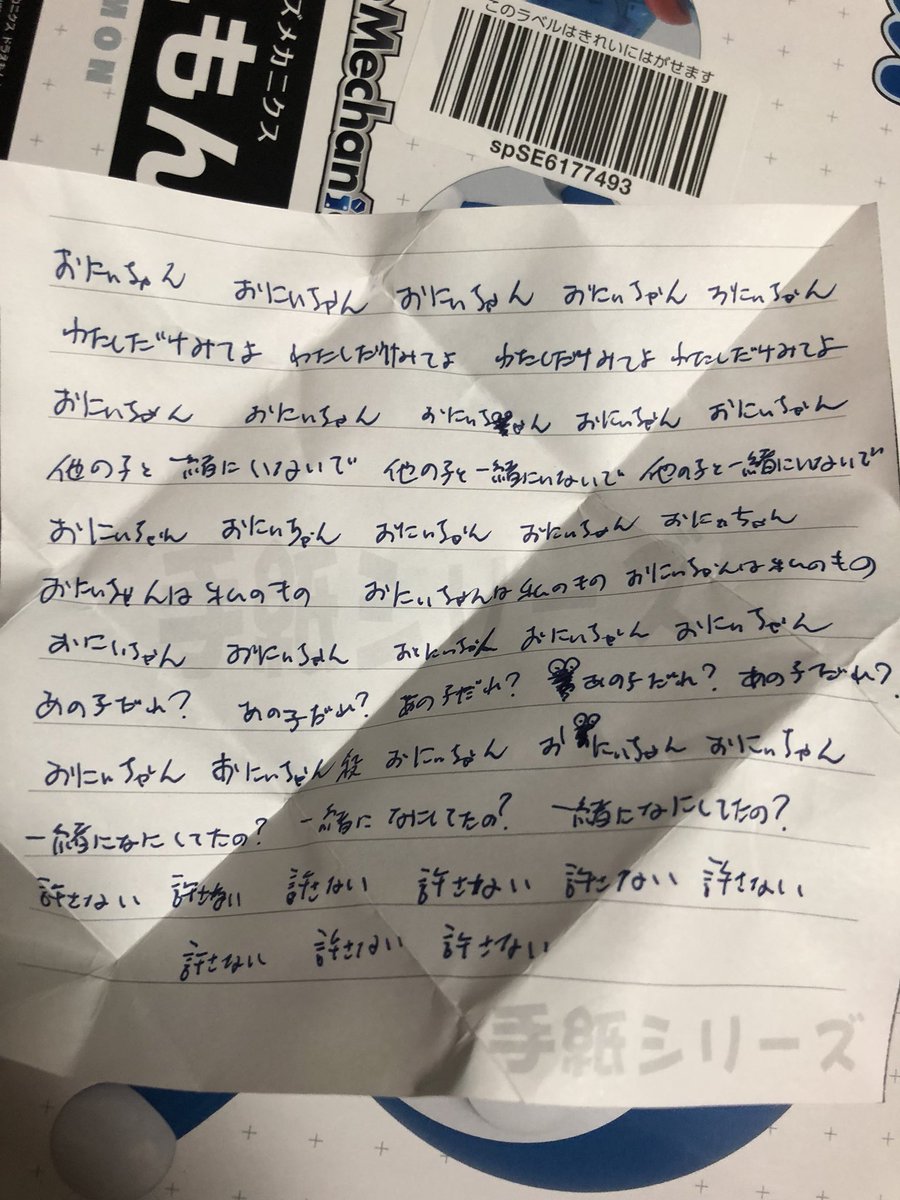 このラベルはきれいにはがせます
spSE6177493
ズメカニクス
もん
MON
Mechani
おにいちゃん おにいちゃん おにいちゃん おにいちゃん おにいちゃん
わたしだけみてよ わたしだけみてよ わたしだけみてよ わたしだけみてよ
おにいちゃん おにいちゃん おにいちゃん おにいちゃん おにいちゃん
他の子と一緒にいないで 他の子と一緒にいないで 他の子と一緒にいないで
おにいちゃん おにいちゃん おにいちゃん おにいちゃん おにいちゃん
おにいちゃんは私のもの おにいちゃんは私のもの おにいちゃんは私のもの
おにいちゃん おにいちゃん おにいちゃん おにいちゃん おにいちゃん
あの子だれ? あの子だれ? あの子だれ? あの子だれ? あの子だれ?
おにいちゃん おにいちゃん おにいちゃん おにいちゃん おにいちゃん
一緒になにしてたの? 一緒になにしてたの? 一緒になにしてたの?
許さない 許さない 許さない 許さない 許さない 許さない
許さない 許さない 許さない
手紙シリーズ